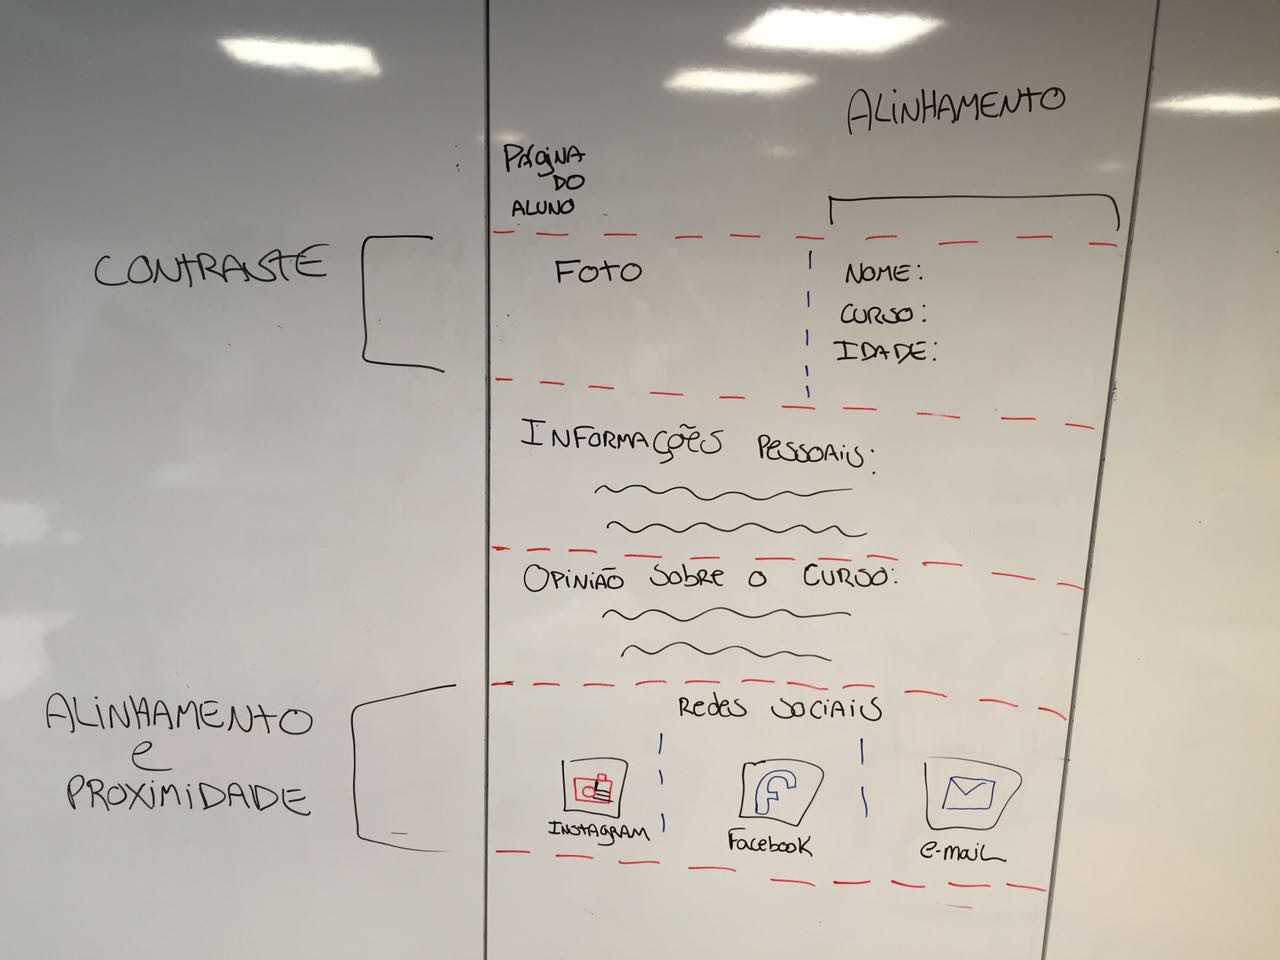 ALINHAMENTO
PÁGINA
DO
ALUNO
CONTRASTE
FOTO
NOME:
CURSO:
IDADE:
INFORMAÇÕES PESSOAIS:
OPINIÃO SOBRE O CURSO:
ALINHAMENTO
e
PROXIMIDADE
Redes SOCIAIS
f
INSTAGRAM
Facebook
e-mail